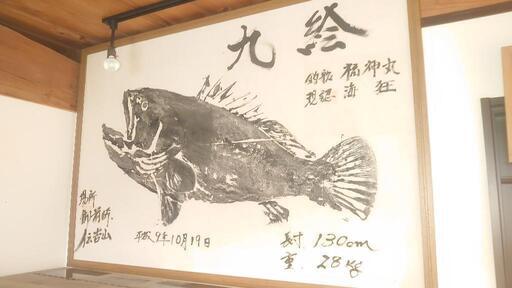 九絵
釣船 福神丸
現認 海狂
場所
平成9年10月19日
長寸 130cm
重 28kg